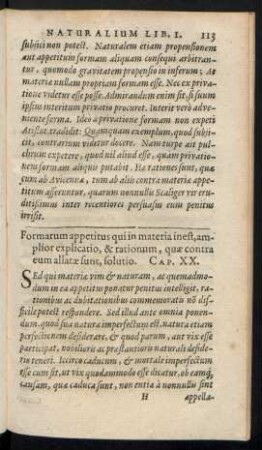 NATURALIUM LIB. I. 113
subijci non potest. Naturalem etiam propensionem
aut appetitum formam aliquam consequi arbitran-
tur, quomodo gravitatem propensio in inferum; At
materiæ nullam propriam formam esse. Nec ex priva-
tione videtur esse posse. Admirandum enim sit, si suum
ipsius interitum privatio procuret. Interit verò adve-
niente forma. Ideo à privatione formam non expeti
Aristot. tradidit: Quamquam exemplum, quod subii-
cit, contrarium videtur docere. Nam turpe ait pul-
chrum expetere, quod nil aliud esse, quam privatio-
nem formam aliquis putabit. Hæ rationes sunt, quæ
cum ab Avicenna, tum ab aliis contra materiæ appe-
titum afferuntur, quarum nonnullis Scaliger vir eru-
ditissimus inter recentiores persuasus eum penitus
irrisit.
Formarum appetitus qui in materia inest, am-
plior explicatio, & rationum, quæ contra
eum allatæ sunt, solutio. CAP. XX.
SEd qui materiæ vim & naturam, ac quemadmo-
dum in ea appetitus ponatur penitus intellegit, ra-
tionibus ac dubitationibus commemoratis nō dif-
ficile potest respondere. Sed illud ante omnia ponen-
dum, quod sua natura imperfectum est, natura etiam
perfectionem desiderare, & quod parum, aut vix esse
participat, nobilioris ac præstantioris naturali deside-
rio teneri. Iccirco caducum, & mutabile imperfectum
esse cum sit, ut vix quodammodo esse dicatur, ob eamq́;
causam, quæ caduca sunt, non entia à nonnullis sint
H appella-